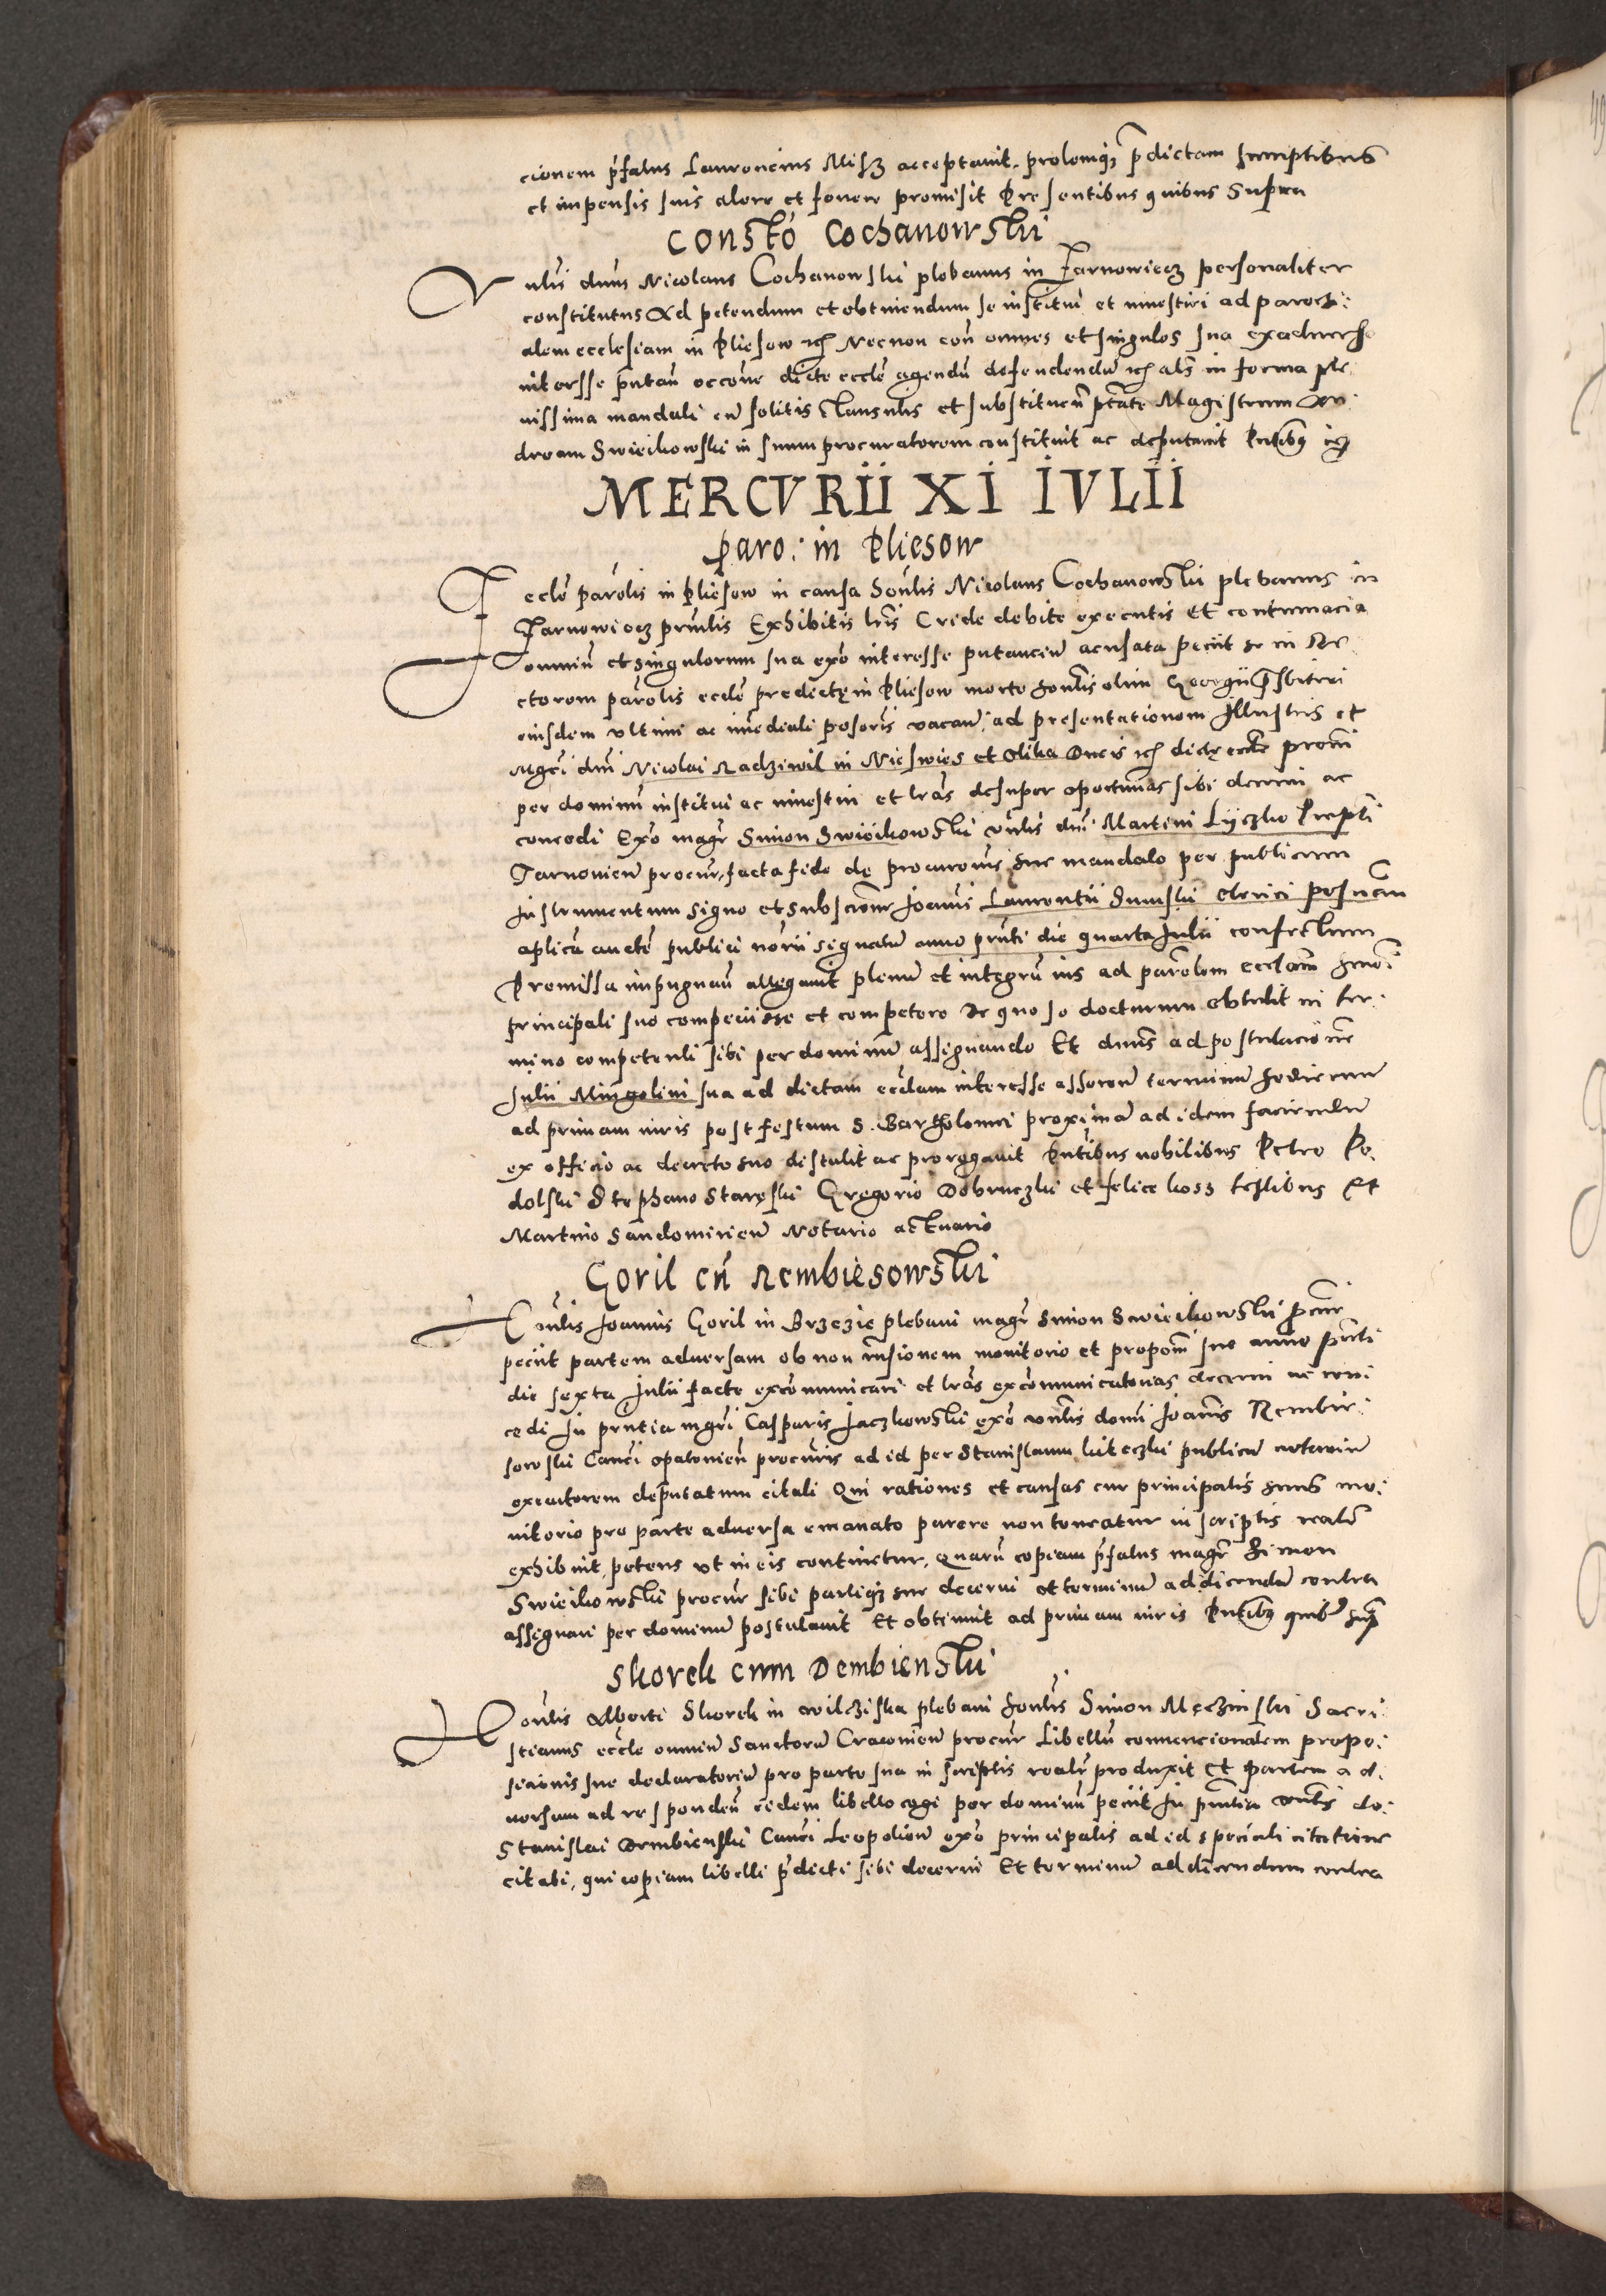 cionem p̄fatus Laurencius Misz acceptavit. prolemq₃ p̄dictam sumptibus
et impensis suis alere et fovere promisit Presentibus quibus Supra
Constō Cochanowski
Vnlis dnus Nicolaus Cochanowski plebanus in Jarnowiecz personaliter
constitutus Ad petendum et obtinendum se institui et investiri ad paroch:
alem ecclesiam in Pliesow Necnon con omnes et singulos sua
interesse putan̄ occōne dicte eccle agendū defendendū als in forma ple
nissima mandati cū solitis clausulis et substituen̄ ptāte Magistrum An:
dream Swieikowski in suum procuratorem constituit ac deputavit Pntibus
MERCVRII XI IVLII
paro: in Pliesow
eccle parolis in Pliesow in causa Nicolaus Cochanowski plebanus in
Jarnowiecz prnlis Exhibitis lris Cride debite executis et contumacia
omniū et singulorum sua exō interesse putanciū acusata peciit se in Re
ctorem parolis eccle predictę in Pliesow morte olim Georgii
eiusdem ultimi ac imediati posoris vacan̄ ad presentationem Illustris et
Mgci dni Nicolai Radziwil in Nieswies et Olika Ducis dictę eccle
per dominū institui ac investiri et lras desuper oportunas sibi decerni ac
concedi Exō magr Simon Swieikowski vnlis dni Martini Lyczko Prepti
Tarnovien̄ procur, facta fide de procuronis sue mandato per publicum
Instrumentum signo et subscrone Joannis Laurentii clerici
aplica aucte publici norii signatū anno prnti die quarta Julii confectum
Premissa impugnan̄ allegavit plenū et integrū ius ad parolem ecclam
principali suo compeciisse et competere de quo se docturum obtulit in ter:
mino competenti sibi per dominū assignando Et dnus ad postulacionem
Julii Mingolini sua ad dictam ecclam interesse asseren̄ terminū hodiernū
ad primam iuris post festum S. Bartholomei proximā ad idem faciendū
ex officio ac decreto suo distulit ac prorogavit Pntibus nobilibus Petro Po:
dolski Stephano Staręski Gregorio Dobruczki et felice koss testibus Et
Martino Sandomirien̄ Notario actuario
Goril cū Rembiesowski
Joannis Goril in Brzezie plebani magr Simon Swieikowski procur
peciit partem adversam ob non monitorio et propom̄ sue anno prnti
die sexta Julii facte excōmunicari et lras excōmunicatorias decerni ac con:
cedi In prntia mgri Casparis Jaczkowski exō vnlis domi Joanis Rembie:
sowski Canci opatovien̄ procuris ad id per Stanislaum publicū notariū
executorem deputatum citati Qui rationes et causas cur principalis suus mo:
nitorio pro parte adversa emanato parere non teneatur in scriptis realr
exhibuit, petens ut in eis continetur, quarū copiam p̄fatus magr Simon
Swieikowski procur sibi partiq₃ sue decerni et terminū ad dicendū contra
assignari per dominū postulavit Et obtinuit ad primam iuris Pntibus quibus supra
Skorek cum Dembienski
Alberti Skorek in Wilcziska plebani Simon Męczinski Sacri:
stianus eccle omniū Sanctorū Cracovien̄ procur Libellū convencionalem propo:
sicionis sue declaratoriū pro parte sua in scriptis realr produxit Et Partem ad:
versam ad responden̄ eidem libello cogi per dominū peciit In prntia do:
Stanislai Dembienski Canci Leopolien̄ exō principalis ad id speciali citatione
citati, qui copiam libelli p̄dicti sibi decerni Et terminū ad dicendum contra